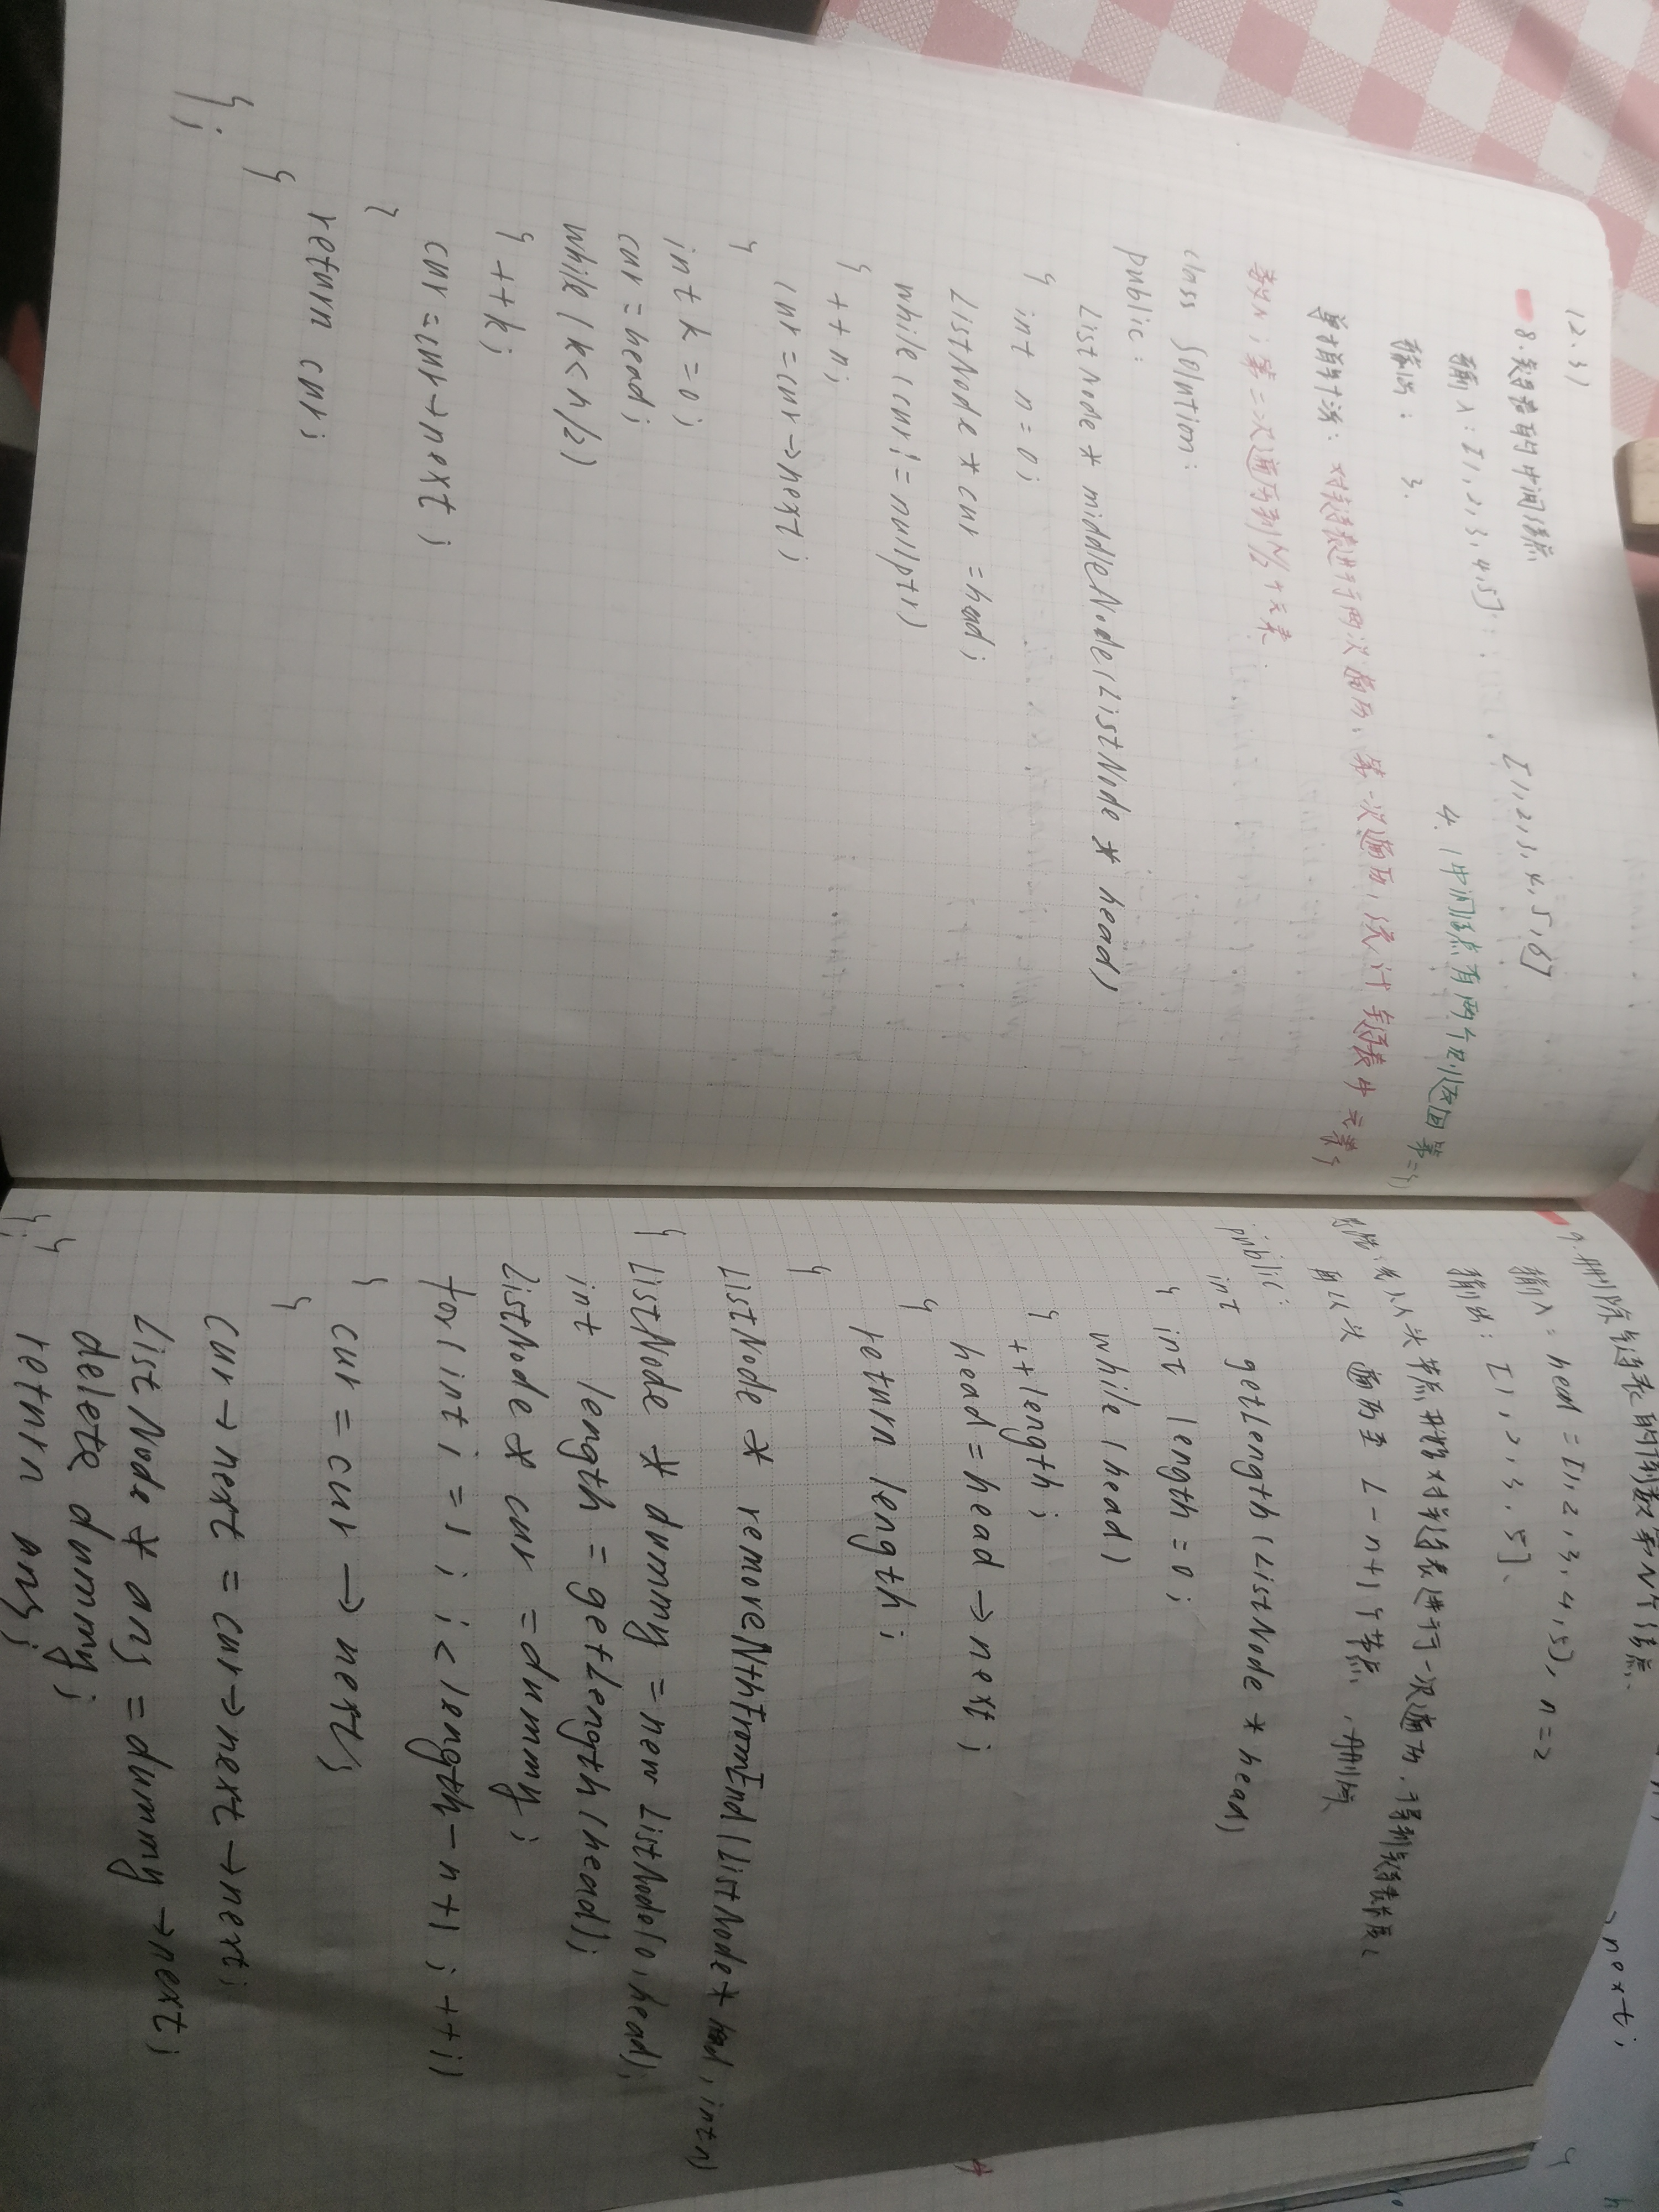 (2.3)
8.链表的中间结点
输入:[1,2,3,4,5] [1,2,3,4,5,6]
输出: 3. 4.(中间结点有两个则返回第二个)
单指针法:对链表进行两次遍历,第一次遍历,统计链表中元素个
数N;第二次遍历到N/2个元素.
class Solution:
public:
ListNode * middleNode(ListNode * head)
{ int n = 0;
ListNode * cur = head;
while (cur != nullptr)
{ ++n;
cur = cur->next;
}
int k = 0;
cur = head;
while (k<n/2)
{ ++k;
cur = cur->next;
}
return cur;
}
};
9.删除链表的倒数第N个结点.
输入: head = [1,2,3,4,5], n=2
输出: [1,2,3,5].
从头节点开始对链表进行一次遍历,得到链表长度L
再从头遍历至L-n+1个节点,删除.
public:
int getLength(ListNode * head)
{ int length = 0;
while (head)
{ ++length;
head = head -> next;
}
return length;
}
ListNode * removeNthFromEnd(ListNode* head, int n)
{ ListNode * dummy = new ListNode(0, head);
int length = getLength(head);
ListNode * cur = dummy;
for(int i = 1; i < length-n+1; ++i)
{
cur = cur -> next;
}
cur->next = cur->next->next;
ListNode * ans = dummy->next;
delete dummy;
return ans;
}
};
next;